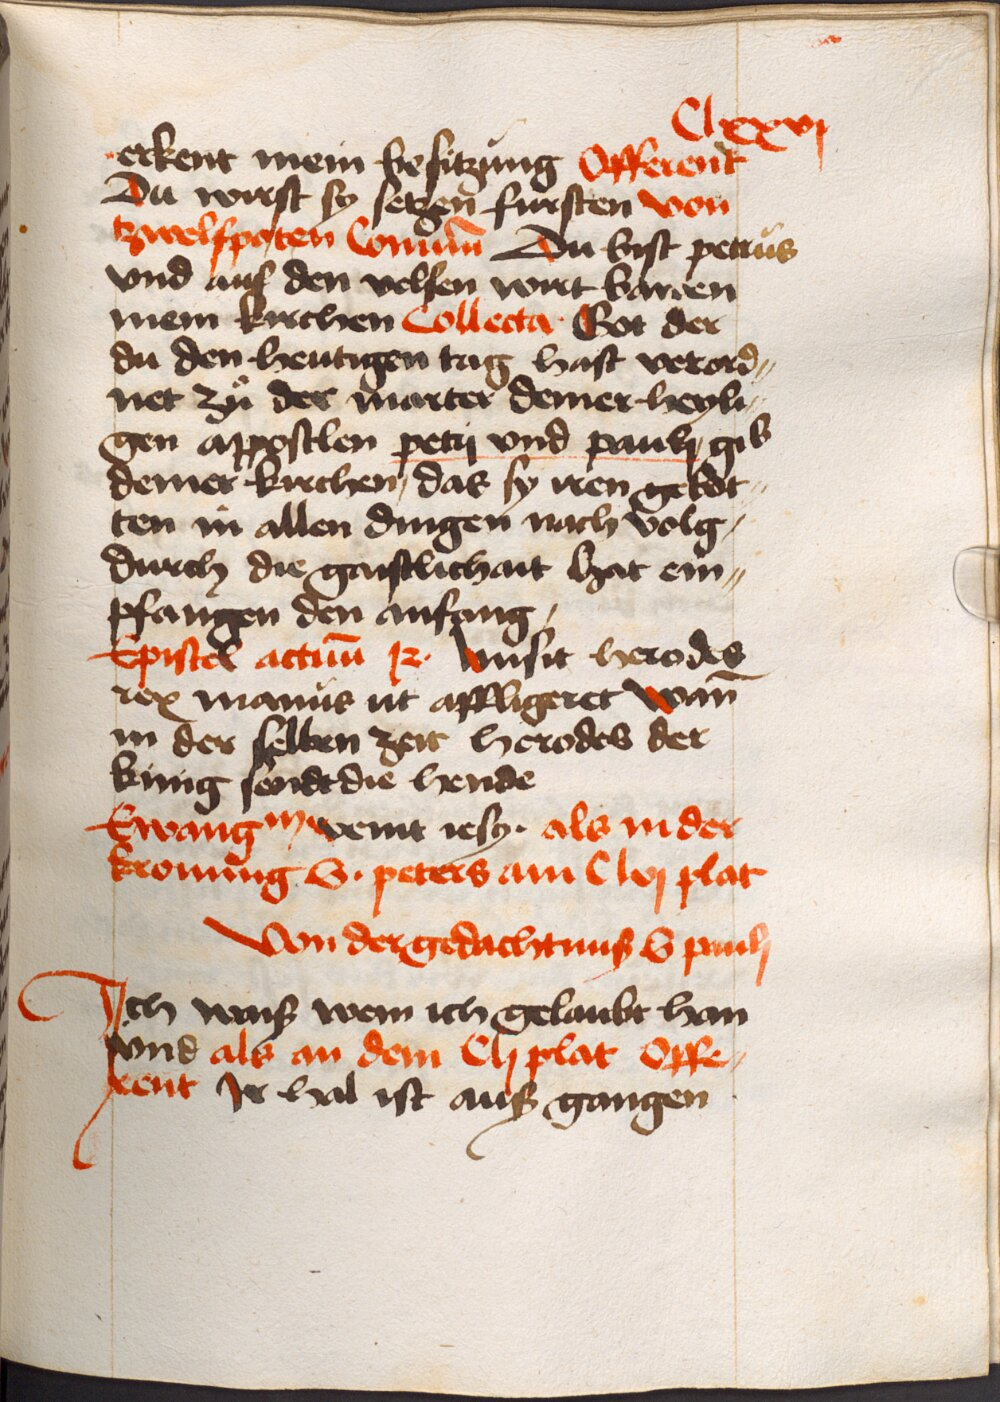 Clxxvj
erkent mein besitzung Offerent
Du wirst sy setzen fursten von
tzwelfpoten Comūm Du bist petrus
vnd auf den velsen wirt bawen
mein kirchen Collecta Got der
du den heutigen tag hast verord„
net zů der marter deiner heyli„
gen appostlen petri vnd pauli, gib
deiner kirchen, das sy iren gebot„
ten in allen dingen nach volg,
durch die gaistlichait hat em„
pfangen den anfang,
Epistel actuū 12. Misit herodes
rex manus ut affligeret Wañ
in der selben zeit herodes der
künig sendt die hende
Ewangm venit iesy. als in der
kronung S. peters am Clvj plat
Von der gedachtnuß S pauli
Ich waiß wem ich gelaubt han
vnd als an dem Clj plat Offe„
rent Ir hal ist auß gangen